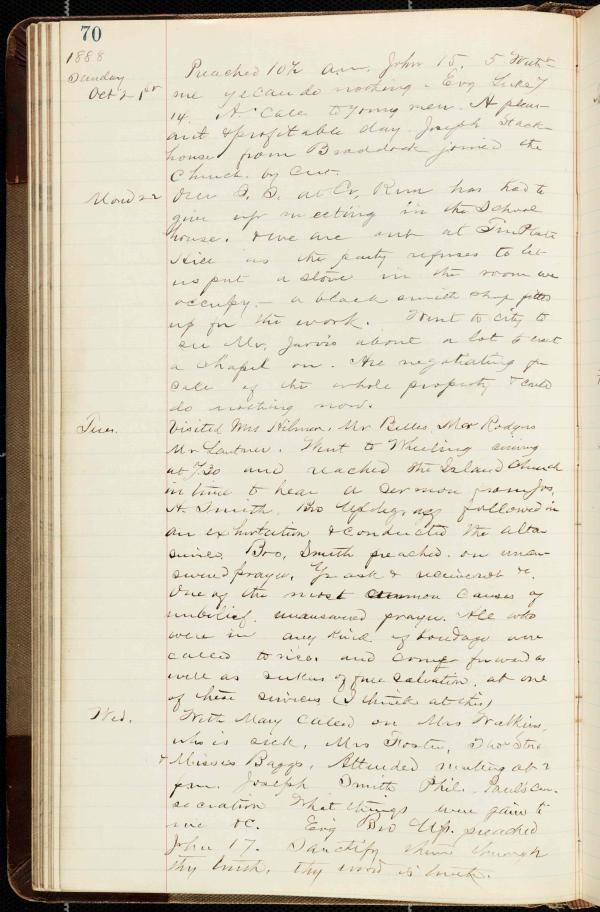 70
1888
Sunday
Oct 21st
Preached 10½ a.m. John 15. 5 Without
me ye can do nothing - Evg Luke 7
14. A Call to young men. A pleas-
ant & profitable day. Joseph Stack-
house from Braddock joined the
Church by Cert.
Mond 22
Our S. S. at Cr, Run has had to
give up meeting in the School
house. & we are out at Tin Plate
Hill as the party refuses to let
us put a stove in the room we
occupy - a black smith shop fitted
up for the work. Went to city to
see Mr. Jarvis about a lot to erect
a chapel on. Are negotiating for
sale of the whole property & could
do nothing now.
Tues.
Visited Mrs Hilman. Mr Belles, Mr Rodgers
Mr Lautner. Went to Wheeling
at 7.30 and reached the Island Church
in time to hear a sermon from Jos.
H. Smith. Bro Updegraff followed in
an exhortation & conducted the altar
services. Bro. Smith preached on unan-
swered prayer. Ye ask & receive not &c.
One of the most common causes of
unbelief. unanswered prayer. All who
were in any kind of bondage were
called to rise and come forward as
well as seekers of free salvation. at one
of these services (I think at this)
Wed.
With Mary called on Mrs Watkins,
who is sick, Mrs Foster,
& Misses Baggs. Attended meeting at 2
p.m. Joseph Smith Phil. Paul's Con-
secration What things were gain to
me &c. Evg Bro Up. preached
John 17. Sanctify them through
thy truth, thy word is truth.